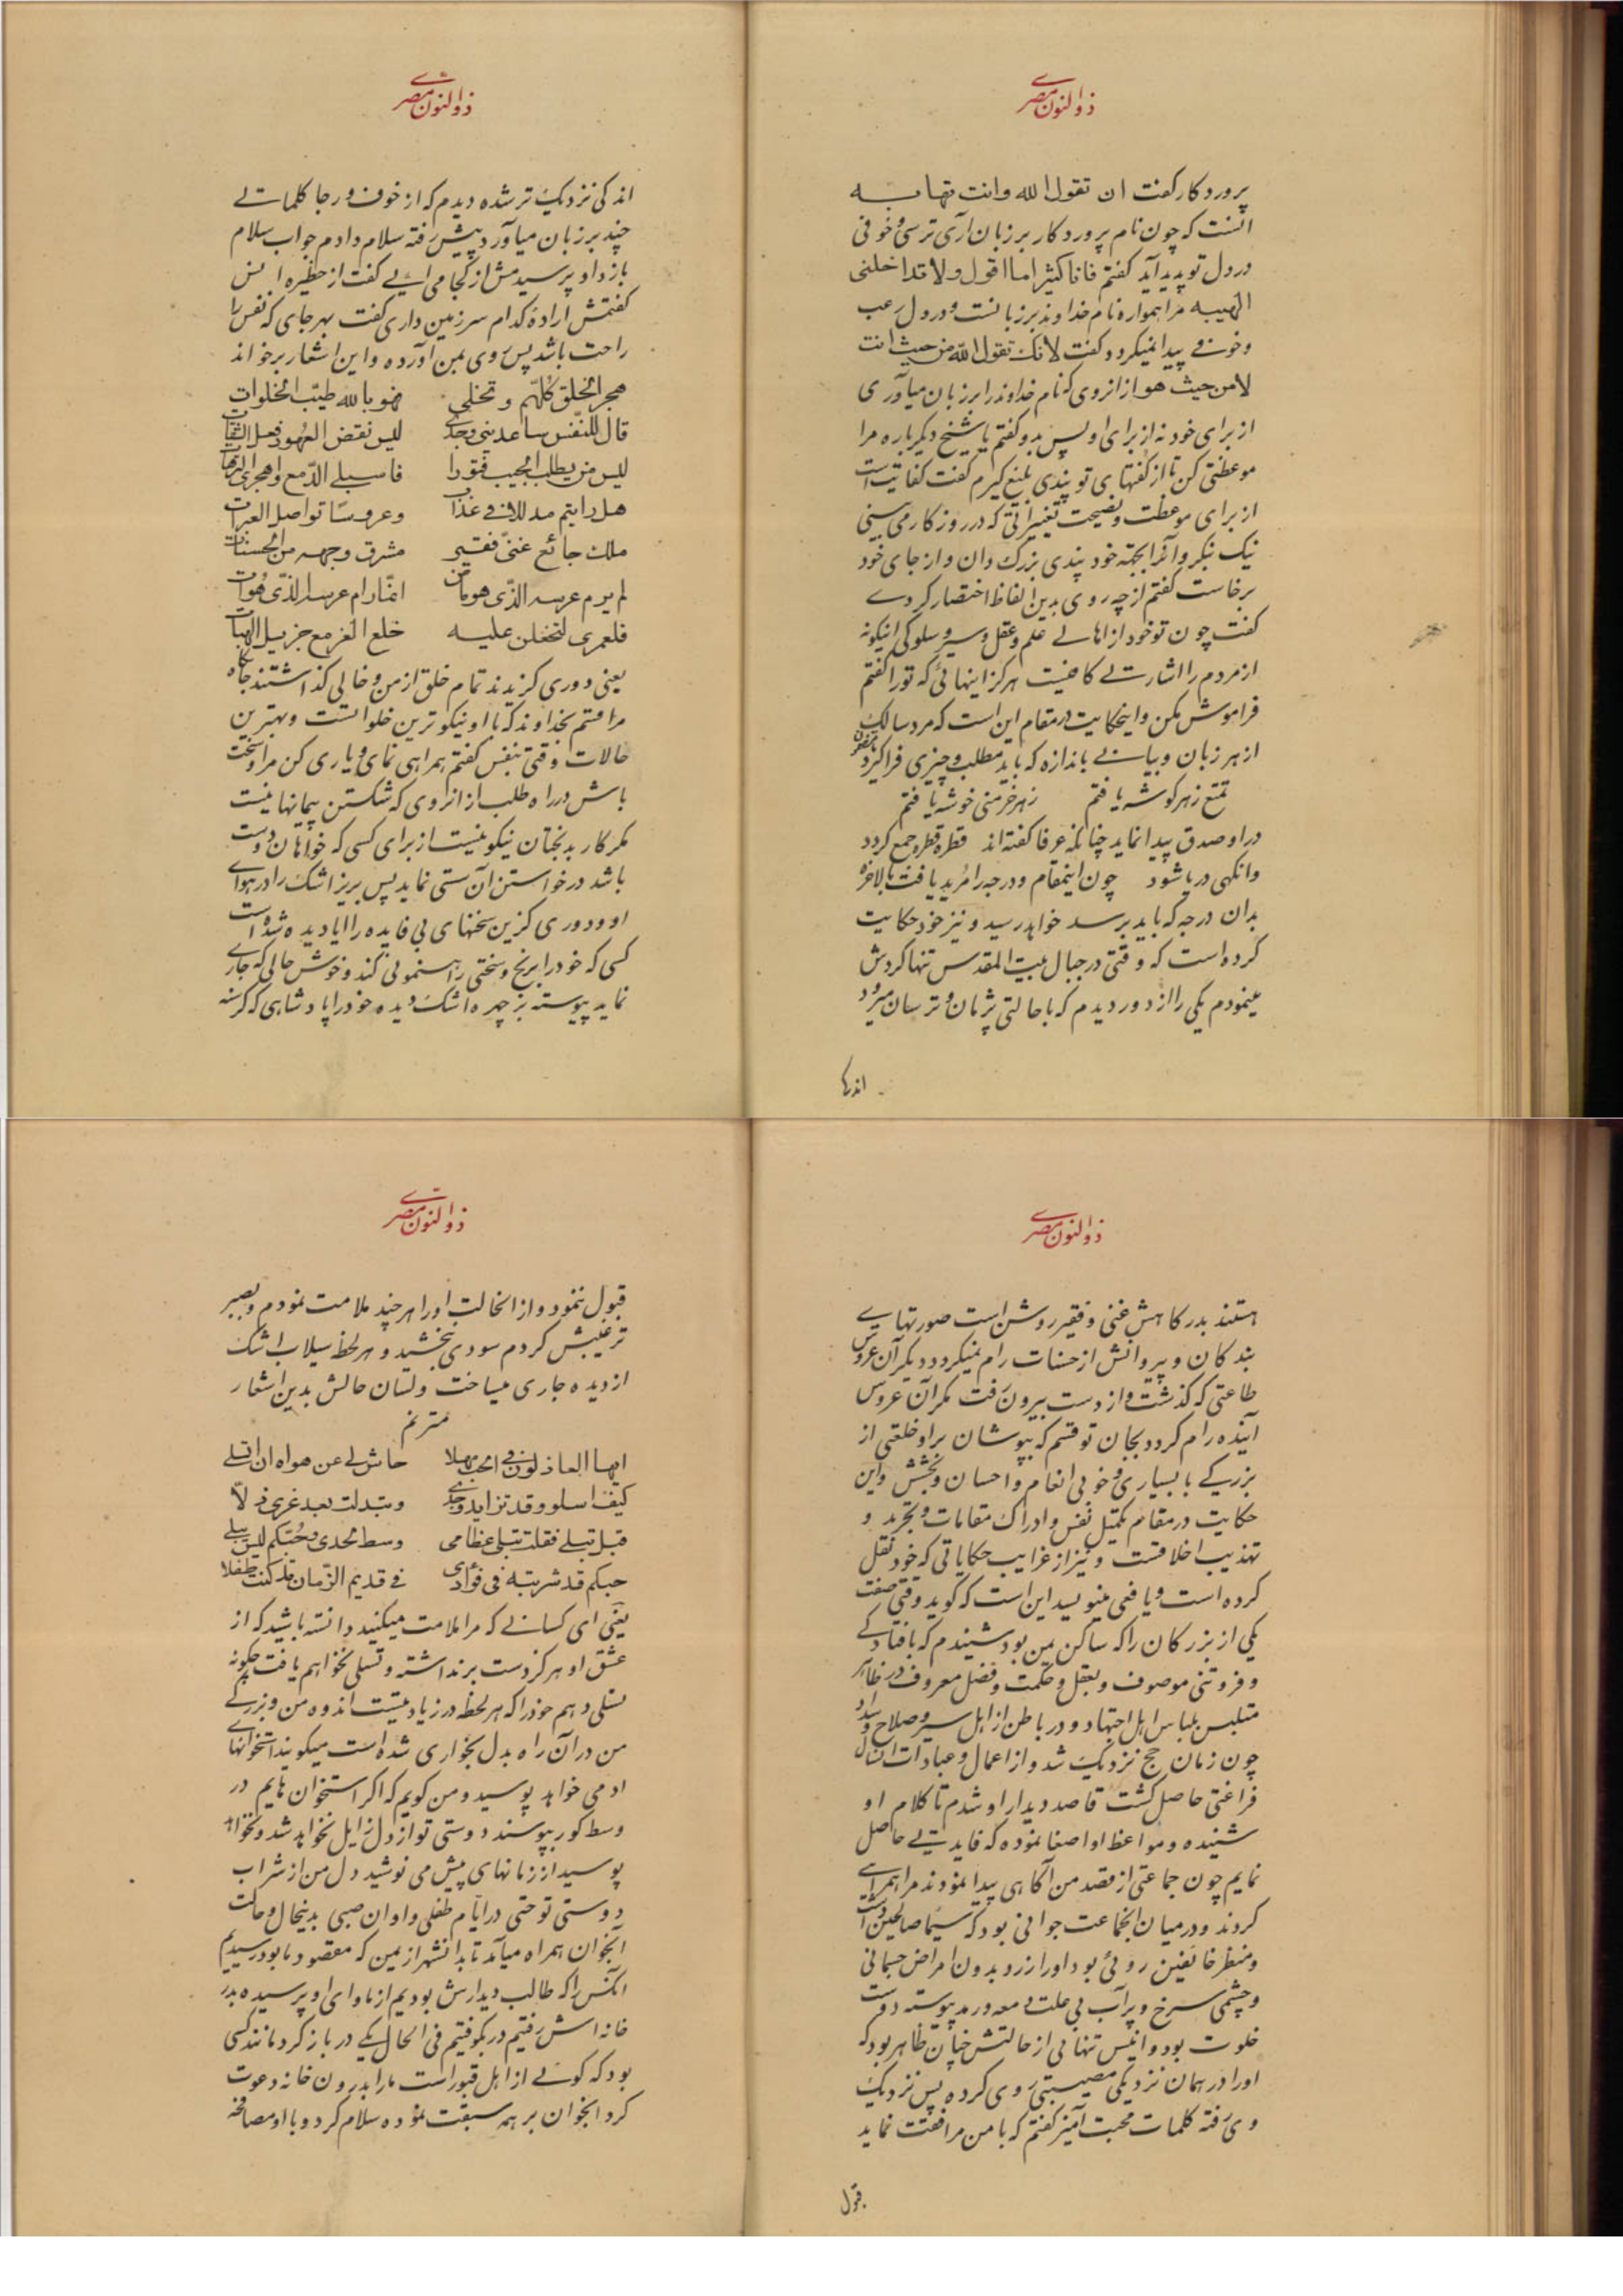 ذوالنون مصری
پروردکار کفت ان تقول الله وانت تهابه
انست که چون نام پروردکار بر زبان آری ترسی و خوفی
در دل تو پدید آید کفتم فانا کثیرا ما اقول ولا تداخلنی
الهیبه مرا همواره نام خداوند بر زبانست و در دل رعب
و خوفی پیدا نمیکردد کفت لانک تقول الله من حیث انت
لا من حیث هو از انروی که نام خداوند را بر زبان میآوری
از برای خود نه از برای او پس بدو کفتم یا شیخ دیکرباره مرا
موعظتی کن تا از کفتهای تو پندی بلیغ کیرم کفت کفایتست
از برای موعظت و نصیحت تغییراتی که در روزکار می بینی
نیک بنکر و آنرا بجهة خود پندی بزرک دان و از جای خود
برخاست کفتم از چه روی بدین الفاظ اختصار کردی
کفت چون تو خود از اهالی علم و عقل و سیر و سلوکی اینکونه
از مردم را اشارتی کافیست هرکز اینهائی که تو را کفتم
فراموش مکن و اینحکایت در مقام این است که مرد سالک
از هر زبان و بیانی باندازه که باید مطلب و چیزی فرا کیرد
تمتع ز هر کوشه یافتم ز هر خرمنی خوشه یافتم
در او صدق پیدا نماید چنانکه عرفا کفته اند قطره قطره جمع کردد
وانکهی دریا شود چون اینمقام و درجه را مرید یافت بالاخره
بدان درجه که باید برسد خواهد رسید و نیز خود حکایت
کرده است که وقتی در جبال بیت المقدس تنها کردش
مینمودم یکی را از دور دیدم که با حالتی پژمان و ترسان میرود
اندکی
ذوالنون مصری
اندکی نزدیک تر شده دیدم که از خوف و رجا کلماتی
چند بر زبان میآورد پیش رفته سلام دادم جواب سلام
باز داد پرسیدمش از کجا می ائی کفت از حظیره انس
کفتمش اراده کدام سرزمین داری کفت بهر جای که نفس را
راحت باشد پس روی بمن آورده و این اشعار برخواند
هجر الخلق کلهم و تخلی فهو بالله طیب الخلوات
قال للنفس ساعدینی وجدی لیس نقض العهود فعل الثقات
لیس من یطلب الحبیب فتورا فاسبلی الدمع واهجری الترهات
هل رایتم مدللا فی عذاب وعروسا تواصل العبرات
ملک جائع غنی فقیر مشرق وجهه من الحسنات
لم یرم عرسه الذی هو فات انما رام عرسه الذی هوات
فلعمری لتخلعن علیه خلع العز مع جزیل الهبات
یعنی دوری کزیدند تمام خلق از من و خالی کذاشتند جایکاه
مرا قسم بخداوند که با او نیکوترین خلواتست و بهترین
حالات وقتی بنفس کفتم همراهی نمای و یاری کن مرا و سخت
باش در راه طلب از انروی که شکستن پیمانها نیست
مکر کار بدبختان نیکو نیست از برای کسی که خواهان دوست
باشد در خواستن آن سستی نماید پس بریز اشک را در هوای
او و دوری کزین سخنهای بی فایده را ایا دیده شده است
کسی که خود را برنج و سختی راهنمونی کند و خوش حالی که جاری
نماید پیوسته بر چهره اشک دیده خود را پادشاهی که کرسنه
ذوالنون مصری
هستند بدرکاهش غنی و فقیر روشن است صورتهای
بندکان و پیروانش از حسنات رام نمیکردد دیکر آن عروس
طاعتی که کذشت و از دست بیرون رفت مکر آن عروس
آینده رام کردد بجان تو قسم که بپوشان بر او خلعتی از
بزرکی با بسیاری و خوبی انعام و احسان و بخشش و این
حکایت در مقام تکمیل نفس و ادراک مقامات و تجرید و
تهذیب اخلاقست و نیز از غرایب حکایاتی که خود نقل
کرده است و یافعی مینویسد این است که کوید وقتی صفت
یکی از بزرکان را که ساکن یمن بود شنیدم که بافتادکی
و فروتنی موصوف و بعقل و حکمت و فضل معروف در ظاهر
متلبس بلباس اهل اجتهاد و در باطن از اهل سیر و صلاح و سداد
چون زمان حج نزدیک شد و از اعمال و عبادات انسال
فراغتی حاصل کشت قاصد دیدار او شدم تا کلام او
شنیده و مواعظ او اصغا نموده که فایدتی حاصل
نمایم چون جماعتی از قصد من آکاهی پیدا نمودند مرا همراهی
کردند و در میان انجماعت جوانی بود که سیما صالحین داشت
و منظر خائفین روئی بود او را زرد بدون امراض جسمانی
و چشمی سرخ و پر آب بی علت دمعه و رمد پیوسته دوست
خلوت بود و انیس تنهائی از حالتش چنان ظاهر بود که
او را در همان نزدیکی مصیبتی روی کرده پس نزدیک
وی رفته کلمات محبت آمیز کفتم که با من مرافقت نماید
قبول
ذوالنون مصری
قبول ننمود و از انحالت او را هر چند ملامت نمودم و بصبر
ترغیبش کردم سودی نبخشید و هر لحظه سیلاب اشک
از دیده جاری میساخت و لسان حالش بدین اشعار
مترنم
ایها العاذلون فی الحب مهلا حاش لی عن هواه ان اتسلی
کیف اسلو و قد تزاید وجدی و تبدلت بعد عزی ذلا
قیل تبلی فقلت تبلی عظامی وسط لحدی و حبکم لیس یبلی
حبکم قد شربته فی فؤادی فی قدیم الزمان قد کنت طفلا
یعنی ای کسانی که مرا ملامت میکنید دانسته باشید که از
عشق او هرکز دست برنداشته و تسلی نخواهم یافت چکونه
تسلی دهم خود را که هر لحظه در زیادتیست اندوه من و بزرکی
من در آن راه بدل بخواری شده است میکویند استخوانهای
ادمی خواهد پوسید و من کویم که اکر استخوان هایم در
وسط کور بپوسند دوستی تو از دل زایل نخواهد شد و نخواهد
پوسید از زمانهای پیش می نوشید دل من از شراب
دوستی تو حتی در ایام طفلی و اوان صبی بدینحال و حالت
انجوان همراه میآمد تا بدانشهر از یمن که مقصود ما بود رسیدیم
انکس را که طالب دیدارش بودیم از ماوای او پرسیده بدر
خانه اش رفتیم در بکوفتیم فی الحال یکی در باز کرد مانند کسی
بود که کوئی از اهل قبور است ما را بدرون خانه دعوت
کرد انجوان بر همه سبقت نموده سلام کرد و با او مصافحه